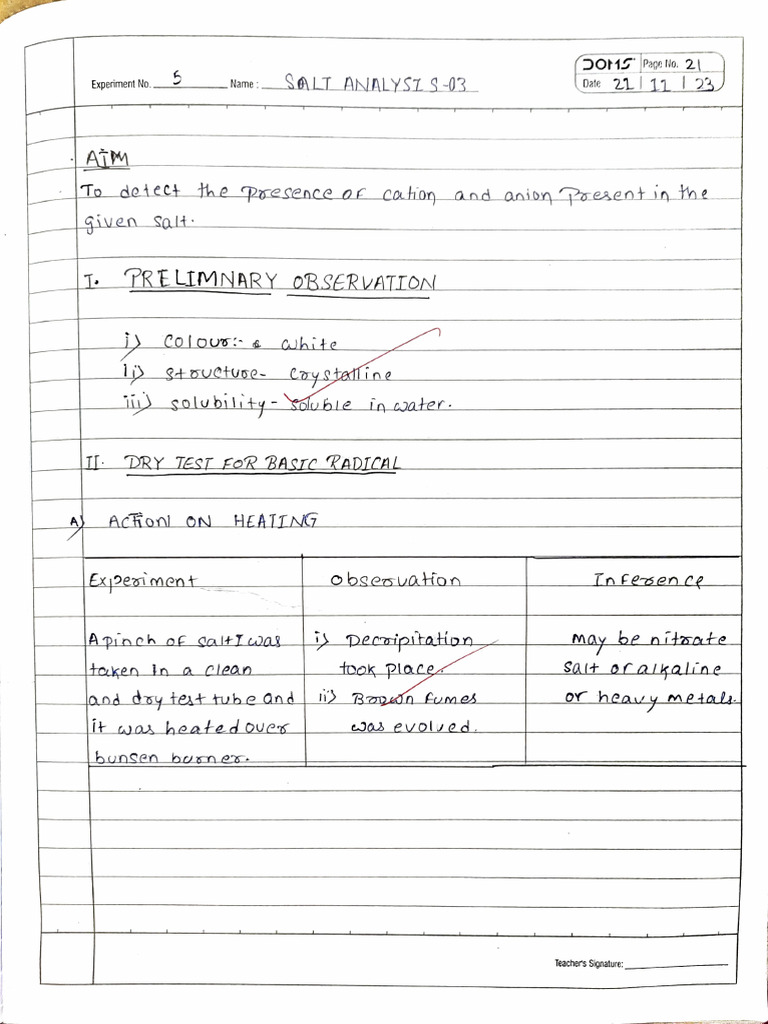 DOMS Page No. 21
Experiment No. 5 Name : SALT ANALYSIS-03
Date 21 | 11 | 23
AIM
To detect the presence of cation and anion Present in the
given salt.
I. PRELIMNARY OBSERVATION
i) Colour:- white
ii) structure- Crystalline
iii) solubility- soluble in water.
II. DRY TEST FOR BASIC RADICAL
A) ACTION ON HEATING
Experiment Observation Inference
A pinch of salt I was i) Decripitation may be nitrate
taken in a clean took place. salt or alkaline
and dry test tube and ii) Brown fumes or heavy metals.
it was heated over was evolved.
bunsen burner.
Teacher's Signature: